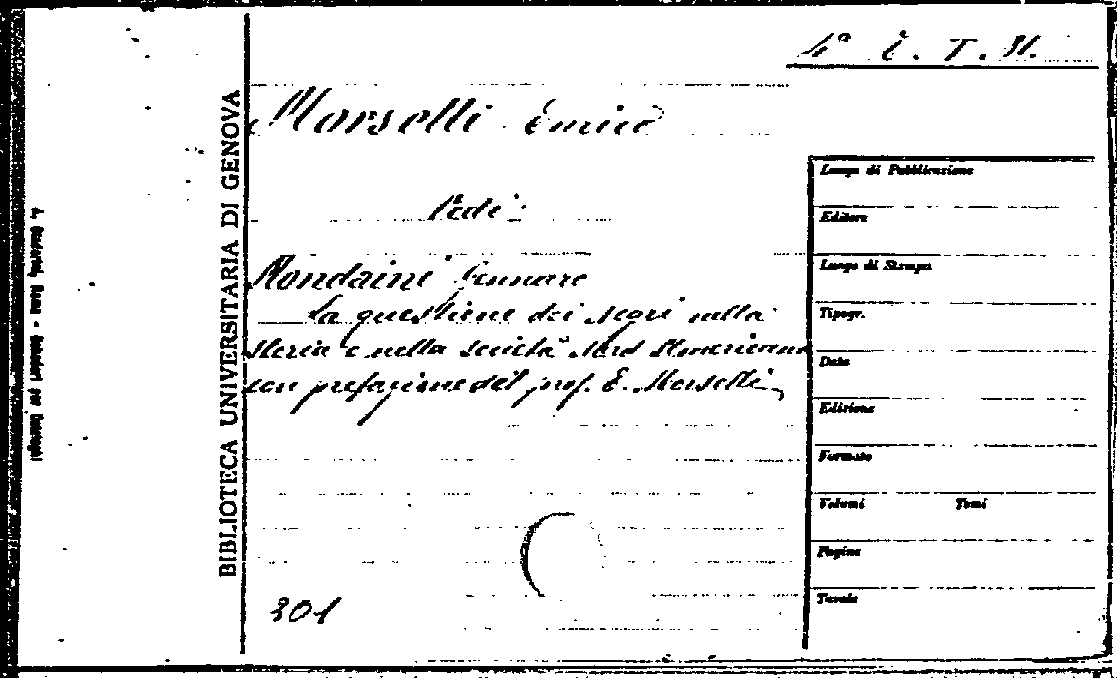 4ª E. T. 31.
Morselli Enrico
Vedi:
Mondaini Gennaro
La questione dei negri nella
storia e nella società Nord Americana
con prefazione del prof. E. Morselli
301
BIBLIOTECA UNIVERSITARIA DI GENOVA
Luogo di Pubblicazione
Editore
Luogo di Stampa
Tipogr.
Data
Edizione
Formato
Volumi Tomi
Pagine
Tavole
Roma - Schedari per Cataloghi